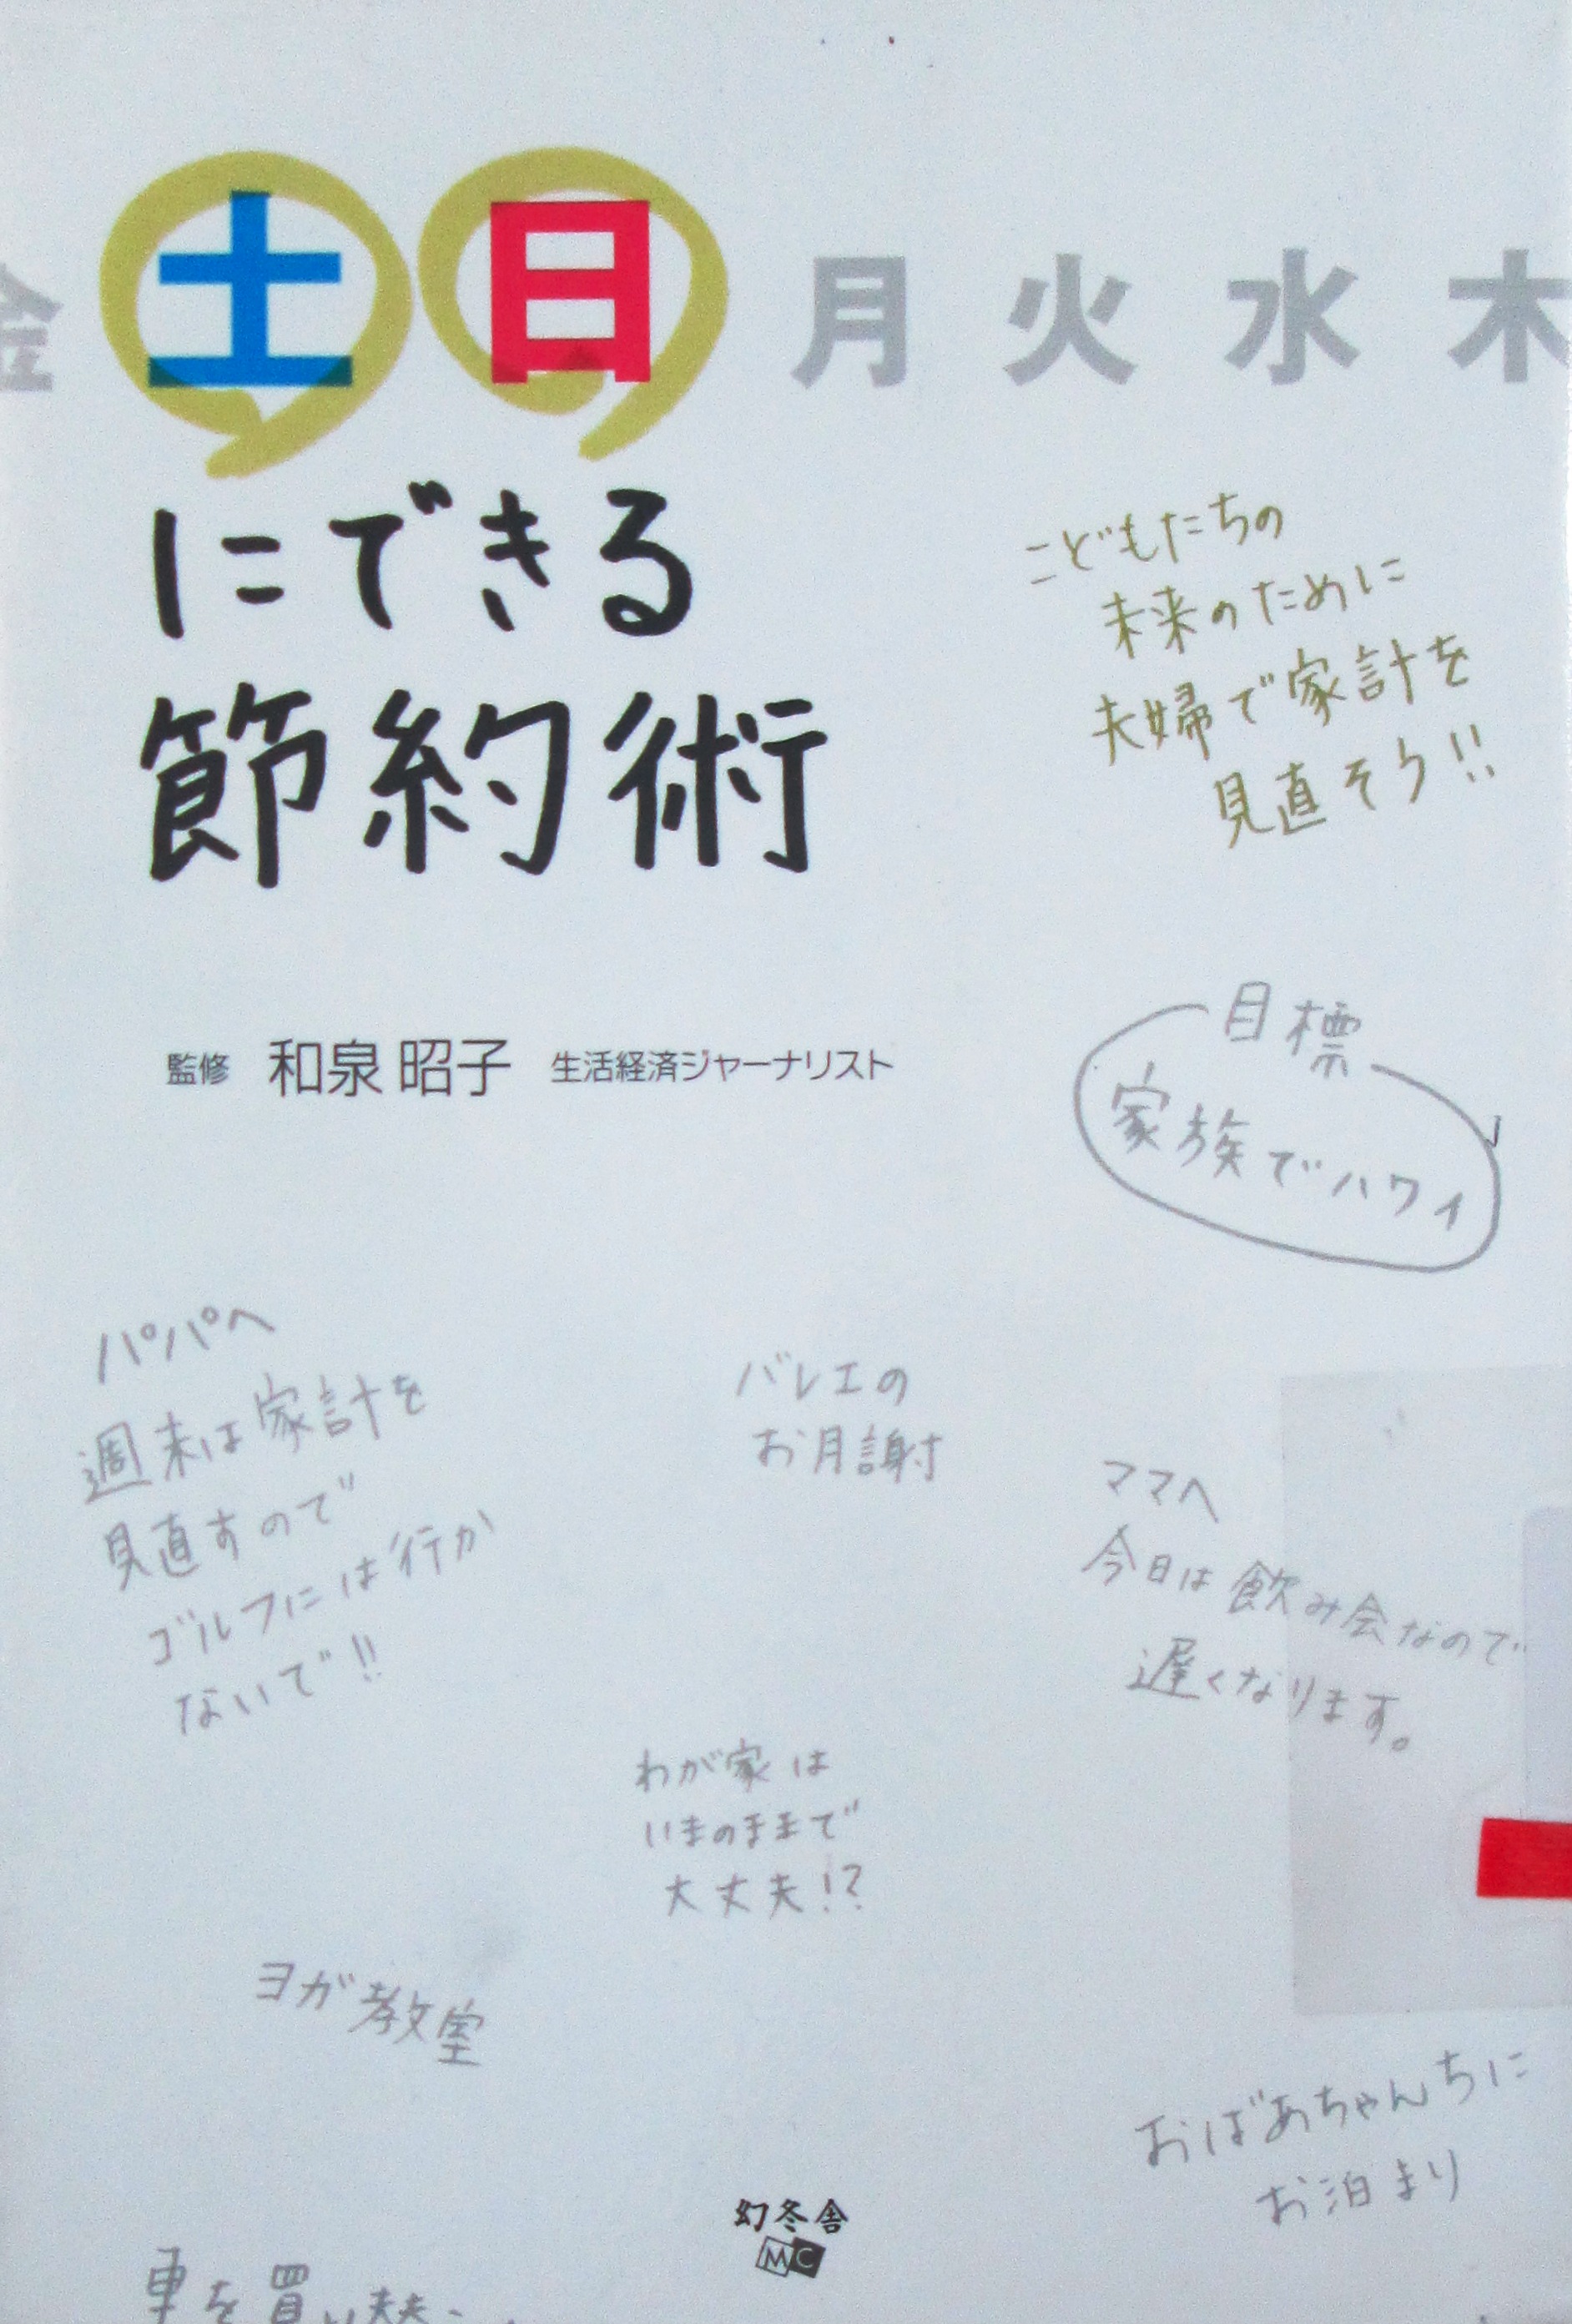 金 土 日 月 火 水 木
にできる
節約術
こどもたちの
未来のために
夫婦で家計を
見直そう!!
監修 和泉 昭子 生活経済ジャーナリスト
目標
家族でハワイ
パパへ
週末は家計を
見直すので
ゴルフには行か
ないで!!
バレエの
お月謝
ママへ
今日は飲み会なので
遅くなります。
わが家は
いまのままで
大丈夫!?
ヨガ教室
おばあちゃんちに
お泊まり
幻冬舎
MC
車を買い替え